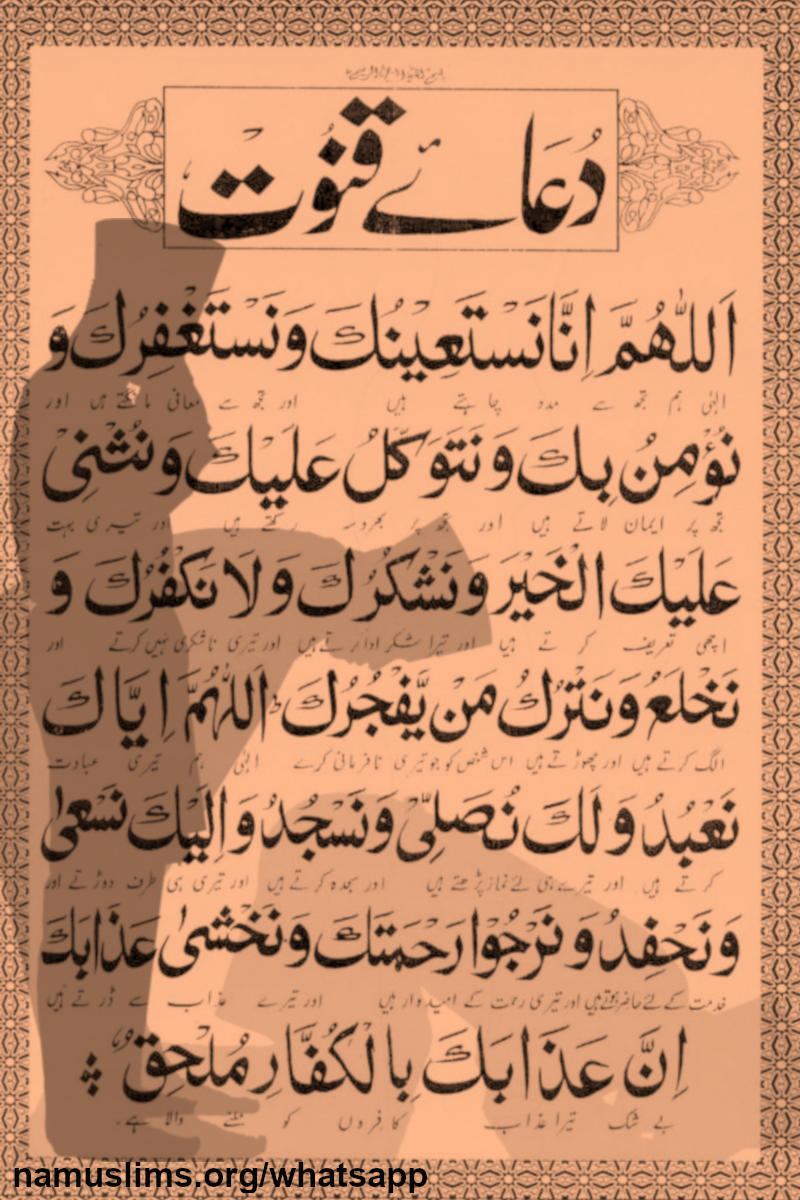 دُعَائے قنُوت
اَللّٰهُمَّ اِنَّا نَسْتَعِيْنُكَ وَنَسْتَغْفِرُكَ وَ
الہٰی ہم تجھ سے مدد چاہتے ہیں اور تجھ سے معافی مانگتے ہیں اور
نُؤْمِنُ بِكَ وَنَتَوَكَّلُ عَلَيْكَ وَنُثْنِيْ
تجھ پر ایمان لاتے ہیں اور تجھ پر بھروسہ رکھتے ہیں اور تیری بہت
عَلَيْكَ الْخَيْرَ وَنَشْكُرُكَ وَلَا نَكْفُرُكَ وَ
اچھی تعریف کرتے ہیں اور تیرا شکر ادا کرتے ہیں اور تیری ناشکری نہیں کرتے اور
نَخْلَعُ وَنَتْرُكُ مَنْ يَّفْجُرُكَ اَللّٰهُمَّ اِيَّاكَ
الگ کرتے ہیں اور چھوڑتے ہیں اس شخص کو جو تیری نافرمانی کرے الہٰی ہم تیری عبادت
نَعْبُدُ وَلَكَ نُصَلِّيْ وَنَسْجُدُ وَاِلَيْكَ نَسْعٰى
کرتے ہیں اور تیرے ہی لئے نماز پڑھتے ہیں اور سجدہ کرتے ہیں اور تیری ہی طرف دوڑتے اور
وَنَحْفِدُ وَنَرْجُوْا رَحْمَتَكَ وَنَخْشٰى عَذَابَكَ
خدمت کے لئے حاضر ہوتے ہیں اور تیری رحمت کے امیدوار ہیں اور تیرے عذاب سے ڈرتے ہیں
اِنَّ عَذَابَكَ بِالْكُفَّارِ مُلْحِقٌ
بے شک تیرا عذاب کافروں کو ملنے والا ہے۔
namuslims.org/whatsapp